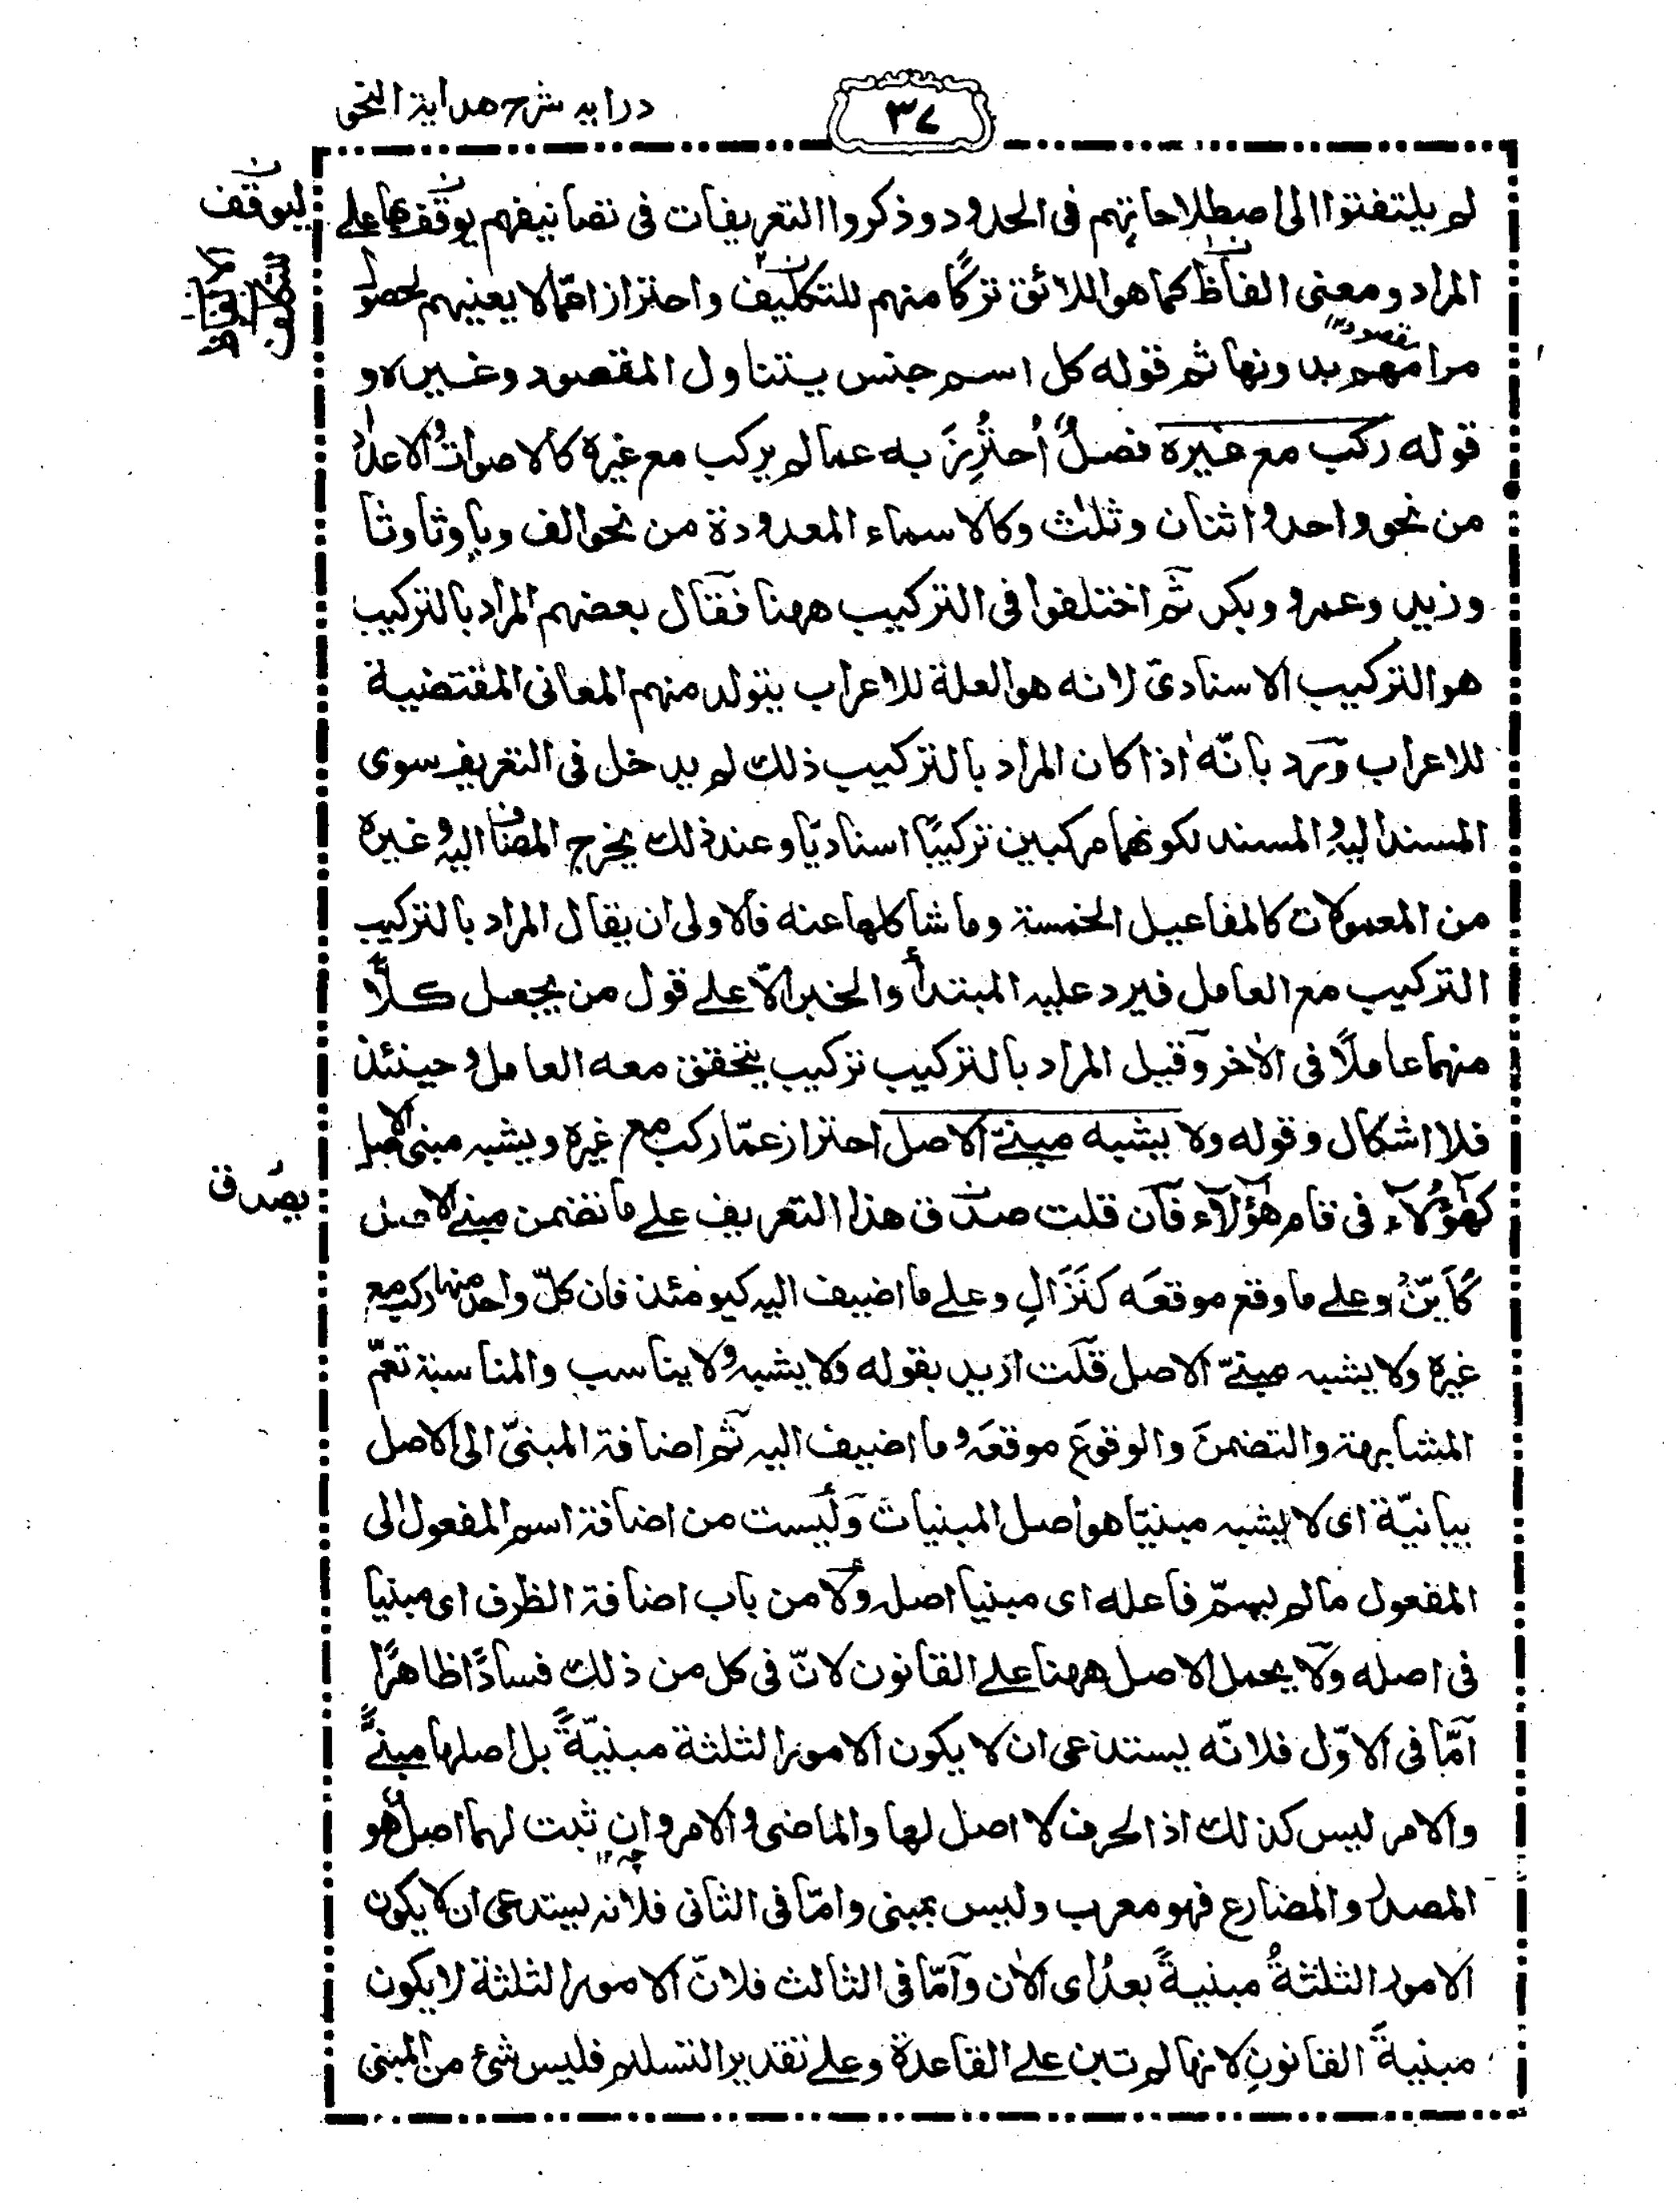 درايه شرح هداية النحو
٣٧
لم يلتفتوا الى اصطلاحاتهم فى الحدود وذكروا التعريفات فى تصانيفهم يوقف بها على
ليوقف
المراد ومعنى الفاظ كما هو اللائق تركًا منهم للتكليف واحترازا عمّا لا يعنيهم لحصول
للتكلف
الالفاظ
مرامهم بدونها ثم قوله كل اسم جنس يتناول المقصود وغيره و
قوله ركب مع غيره فصلٌ اُحتُرِزَ به عما لم يركب مع غيره كالاصوات والاعداد
من نحو واحد و اثنان وثلٰث وكالاسماء المعدودة من نحو الف وبا وتا وثا
وزيد وعمرو وبكر ثم اختلفوا فى التركيب ههنا فقال بعضهم المراد بالتركيب
هو التركيب الاسنادىّ لانه هو العلة للاعراب يتولد منهم المعانى المقتضية
للاعراب ورد بانّه اذا كان المراد بالتركيب ذلك لم يدخل فى التعريف سوى
المسند اليه والمسند لكونهما مركبين تركيبًا اسناديّا وعند ذلك يخرج المضاف اليه وغيره
من المعمولات كالمفاعيل الخمسة وما شاكلها عنه فالاولى ان يقال المراد بالتركيب
التركيب مع العامل فيرد عليه المبتدأ والخبر الّا على قول من يجعل كلًّا
منهما عاملًا فى الاٰخر وقيل المراد بالتركيب تركيب يتحقق معه العامل وحينئذ
فلا اشكال وقوله ولا يشبه مبنىّ الاصل احتراز عمّا ركب مع غيره ويشبه مبنى الاصل
كهٰؤلاء فى قام هٰؤلآء فان قلت صدق هذا التعريف على ما تضمن مبنى الاصل
يصدق
كاَينَ وعلى ما وقع موقعَه كنَزَالِ وعلى ما اضيف اليه كيومئذ فان كلّ واحد منها ركب مع
غيره ولا يشبه مبنىّ الاصل قلت اريد بقوله ولا يشبه ولا يناسب والمناسبة تعمّ
المشابهة والتضمنَ والوقوعَ موقعَه وما اضيف اليه ثم اضافة المبنىّ الى الاصل
بيانيّة اى لا يشبه مبنيّا هو اصل المبنيات وليست من اضافة اسم المفعول الى
المفعول مالم يسمّ فاعله اى مبنيا اصله ولا من باب اضافة الظرف اى مبنيا
فى اصله ولا يحمل الاصل ههنا على القانون لانّ فى كل من ذلك فسادًا ظاهرًا
امّا فى الاوّل فلانّه يستدعى ان لا يكون الامور الثلثة مبنيّةً بل اصلها مبنىًّ
والامر ليس كذلك اذ الحرف لا اصل لها والماضى والامر وان ثبت لهما اصل هو
المصدر والمضارع فهو معرب وليس بمبنى وامّا فى الثانى فلانه يستدعى ان لا يكون
الامور الثلثةُ مبنيةً بعدُ اى الاٰن وامّا فى الثالث فلانّ الامور الثلثة لا يكون
مبنيةَ القانونِ لانها لم تبن على القاعدة وعلى تقدير التسليم فليس شئ من المبنى